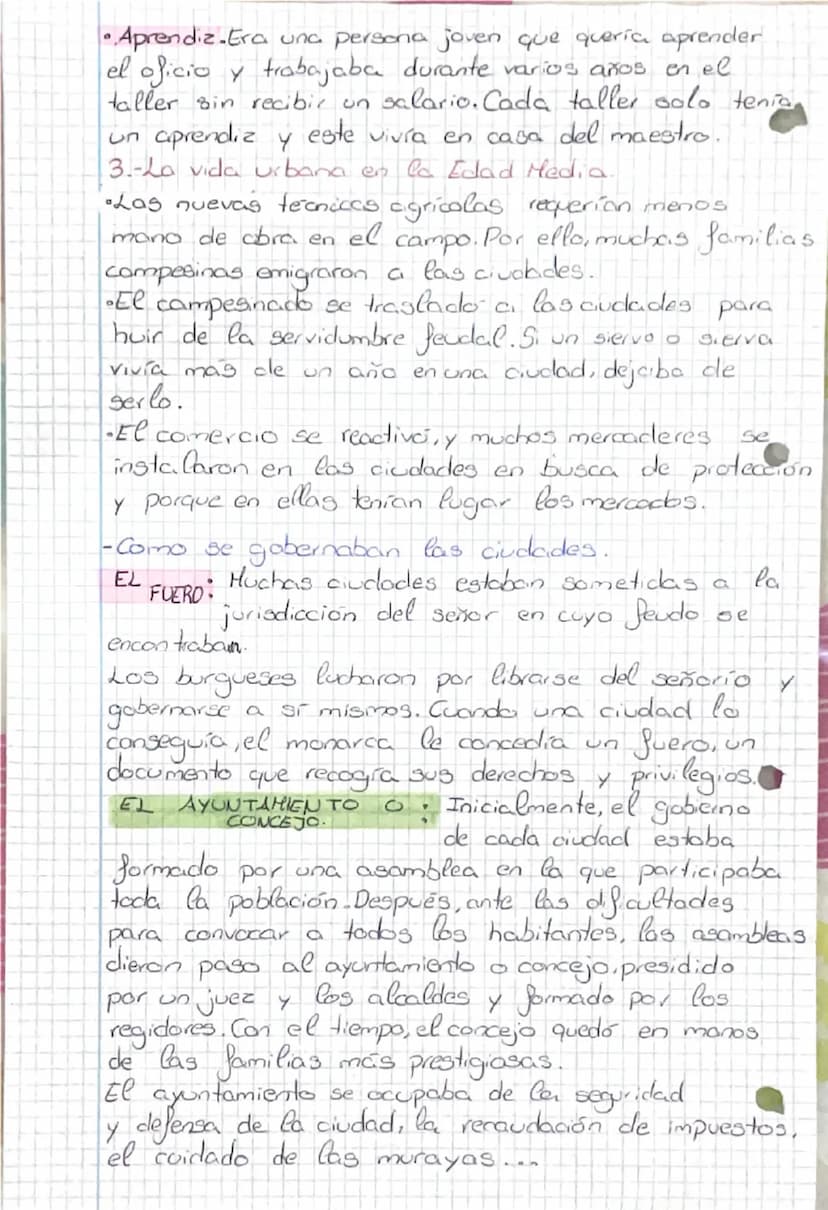 •Aprendiz.Era una persona joven que quería aprender
el oficio y trabajaba durante varios años en el
taller sin recibir un salario. Cada taller solo tenía
un aprendiz y este vivía en casa del maestro.
3.-La vida urbana en la Edad Media.
•Las nuevas técnicas agrícolas requerían menos
mano de obra en el campo. Por ello, muchas familias
campesinas emigraron a las ciudades.
•El campesnado se trasladó a las ciudades para
huir de la servidumbre feudal. Si un siervo o sierva
vivía más de un año en una ciudad, dejaba de
serlo.
•El comercio se reactivó, y muchos mercaderes se
instalaron en las ciudades en busca de protección
y porque en ellas tenían lugar los mercados.
-Como se gobernaban las ciudades.
EL FUERO: Muchas ciudades estaban sometidas a la
jurisdicción del señor en cuyo feudo se
encontraban.
Los burgueses lucharon por librarse del señorío y
gobernarse a sí mismos. Cuando una ciudad lo
conseguía, el monarca le concedía un fuero, un
documento que recogía sus derechos y privilegios.
EL AYUNTAMIENTO O : Inicialmente, el gobierno
CONCEJO. de cada ciudad estaba
formado por una asamblea en la que participaba
toda la población. Después, ante las dificultades
para convocar a todos los habitantes, las asambleas
dieron paso al ayuntamiento o concejo, presidido
por un juez y los alcaldes y formado por los
regidores. Con el tiempo, el concejo quedó en manos
de las familias más prestigiosas.
El ayuntamiento se ocupaba de la seguridad
y defensa de la ciudad, la recaudación de impuestos,
el cuidado de las murayas...